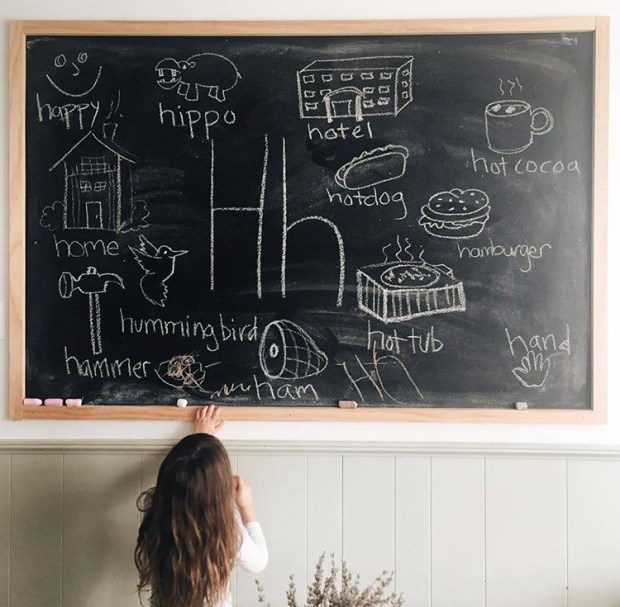 happy
hippo
hotel
hot cocoa
Hh
hotdog
hamburger
home
hummingbird
hot tub
hand
hammer
ham
Hh